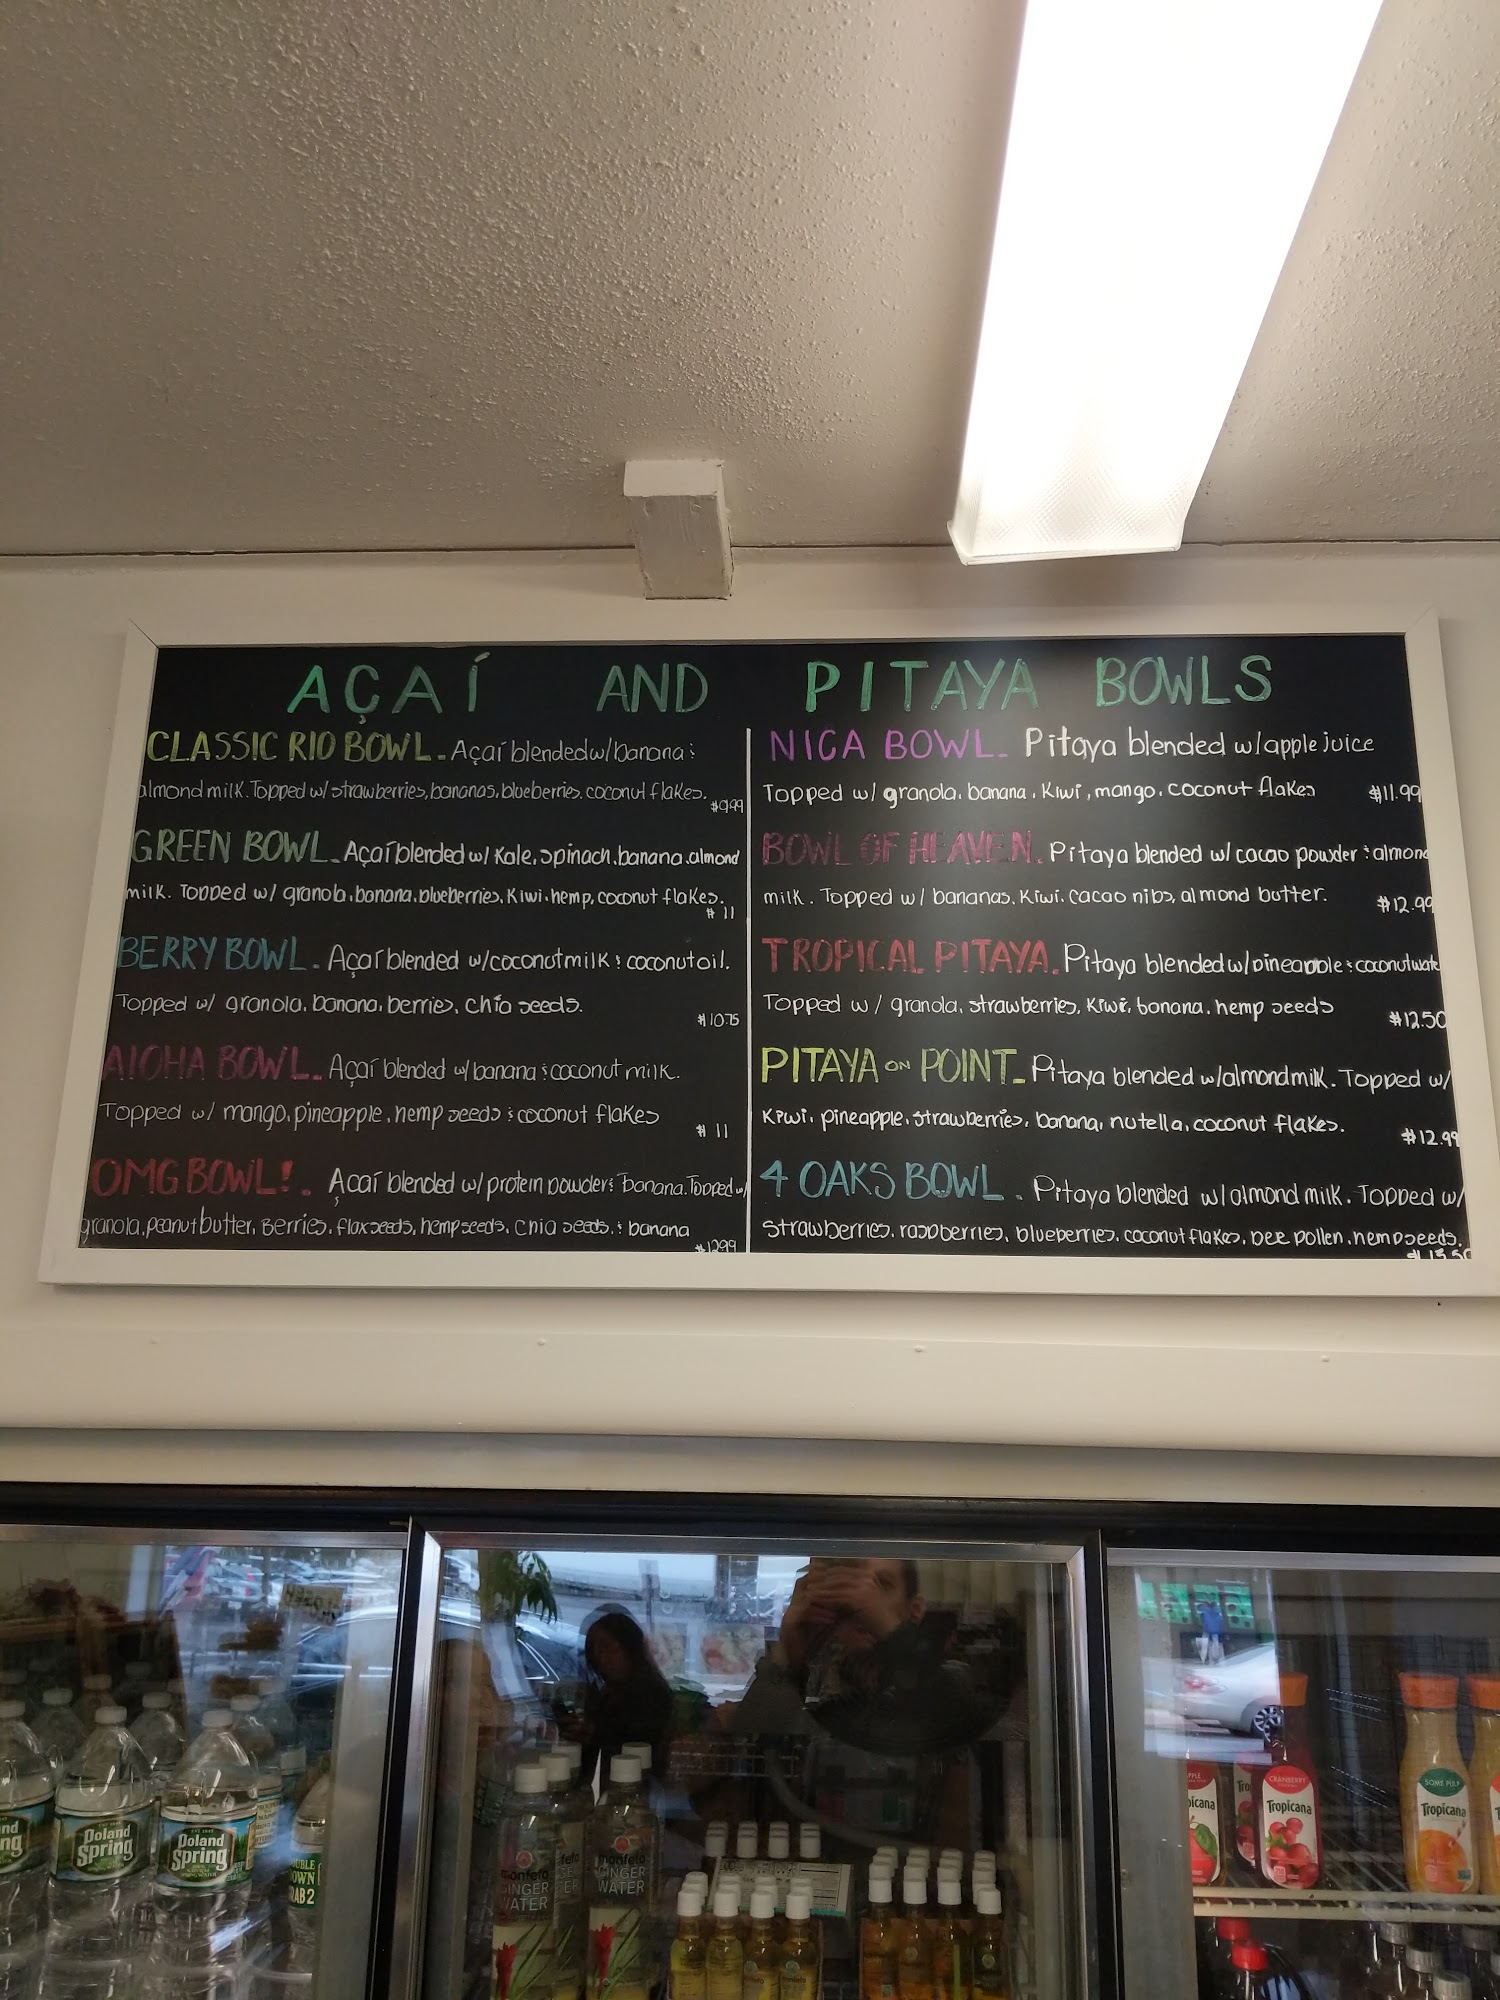 AÇAÍ AND PITAYA BOWLS
CLASSIC RIO BOWL. Açaí blended w/banana &
almond milk. Topped w/ strawberries, bananas, blueberries, coconut flakes.
$9.99
GREEN BOWL. Açaí blended w/ Kale, spinach, banana, almond
milk. Topped w/ granola, banana, blueberries, Kiwi, hemp, coconut flakes.
$11
BERRY BOWL. Açaí blended w/coconut milk & coconut oil.
Topped w/ granola, banana, berries, chia seeds.
$10.75
ALOHA BOWL. Açaí blended w/banana & coconut milk.
Topped w/ mango, pineapple, hemp seeds & coconut flakes
$11
OMG BOWL!. Açaí blended w/ protein powder & banana. Topped w/
granola, peanut butter, Berries, flaxseeds, hemp seeds, chia seeds, & banana
$12.99
NICA BOWL. Pitaya blended w/apple juice
Topped w/ granola, banana, Kiwi, mango, coconut flakes $11.99
BOWL OF HEAVEN. Pitaya blended w/ cacao powder & almond
milk. Topped w/ bananas, Kiwi, cacao nibs, almond butter. $12.99
TROPICAL PITAYA. Pitaya blended w/pineapple & coconut wate
Topped w/ granola, strawberries, Kiwi, banana, hemp seeds $12.50
PITAYA ON POINT. Pitaya blended w/almond milk. Topped w/
Kiwi, pineapple, strawberries, banana, nutella, coconut flakes. $12.99
4 OAKS BOWL. Pitaya blended w/almond milk. Topped w/
Strawberries, raspberries, blueberries, coconut flakes, bee pollen, hemp seeds.
$13.50
Poland Spring
Poland Spring
DOUBLE
DOWN
GRAB 2
monfefo
GINGER
WATER
monfefo
GINGER
WATER
CRANBERRY
Tropicana
SOME PULP
Tropicana